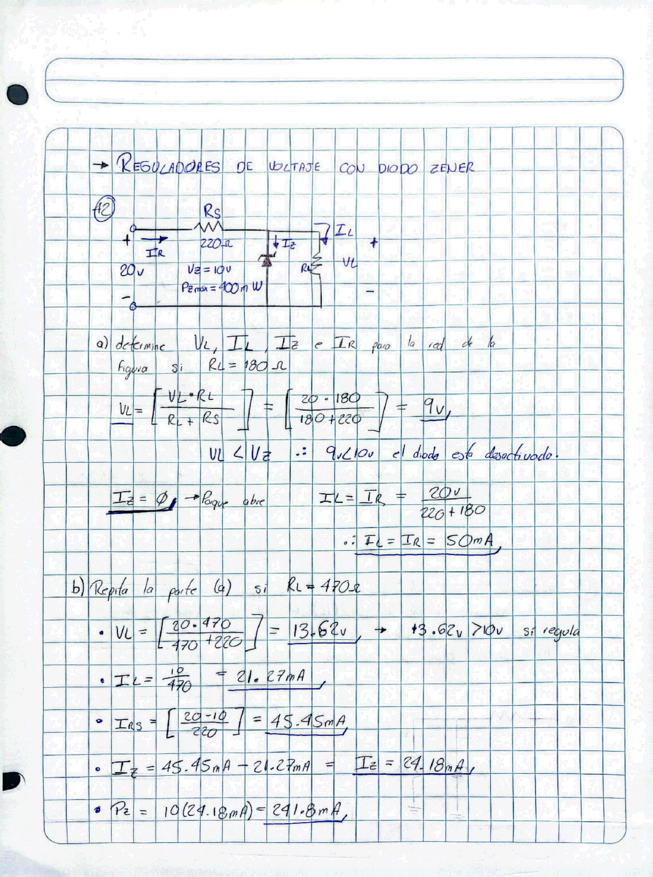 → REGULADORES DE VOLTAJE CON DIODO ZENER
12
Rs
220Ω
+ IR
20v
-
Vz = 10v
Pzmax = 400m W
Iz
RL
IL
+
VL
-
a) determine VL, IL, Iz e IR para la red de la
figura si RL = 180 Ω
VL = [VL·RL / RL + Rs] = [20 · 180 / 180 + 220] = 9v
VL < Vz ∴ 9v<10v el diodo está desactivado.
Iz = ϕ → Porque abre IL = IR = 20v / 220 + 180
∴ IL = IR = 50mA
b) Repita la parte (a) si RL = 470Ω
• VL = [20·470 / 470 + 220] = 13.62v → 13.62v >10v si regula
• IL = 10 / 470 = 21.27mA
• IRS = [20-10 / 220] = 45.45mA
• Iz = 45.45mA - 21.27mA = Iz = 24.18mA
• Pz = 10(24.18mA) = 241.8mA